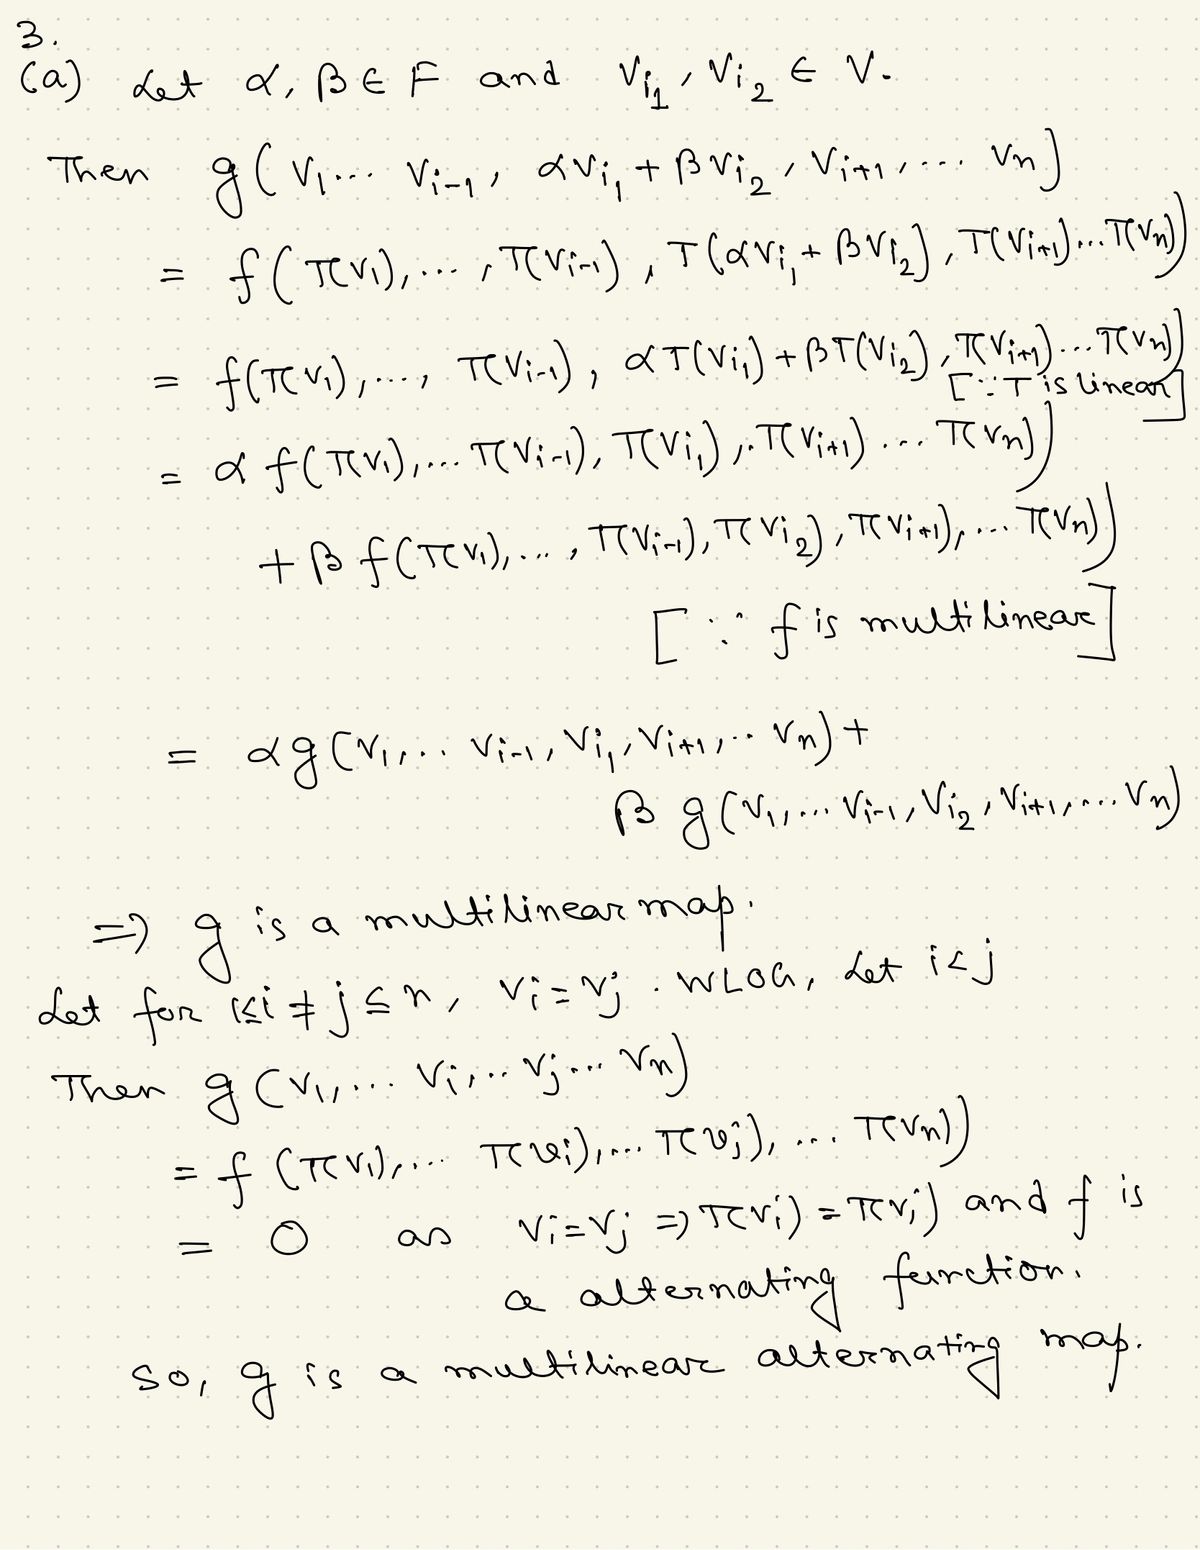 3.
(a) Let α, β ∈ F and v_{i_1}, v_{i_2} ∈ V.
Then g(v_1... v_{i-1}, αv_{i_1} + βv_{i_2}, v_{i+1}, ... v_n)
= f(T(v_1), ..., T(v_{i-1}), T(αv_{i_1} + βv_{i_2}), T(v_{i+1})...T(v_n))
= f(T(v_1), ..., T(v_{i-1}), αT(v_{i_1}) + βT(v_{i_2}), T(v_{i+1})...T(v_n))
[∵ T is linear]
= α f(T(v_1), ... T(v_{i-1}), T(v_{i_1}), T(v_{i+1}) ... T(v_n))
+ β f(T(v_1), ..., T(v_{i-1}), T(v_{i_2}), T(v_{i+1}), ... T(v_n))
[∵ f is multilinear]
= αg(v_1, .. v_{i-1}, v_{i_1}, v_{i+1}, .. v_n) +
β g(v_1, ... v_{i-1}, v_{i_2}, v_{i+1}, ... v_n)
⇒ g is a multilinear map.
Let for 1≤i ≠ j ≤ n, v_i = v_j. WLOG, Let i < j
Then g(v_1, ... v_i, .. v_j ... v_n)
= f (T(v_1), ... T(v_i), ... T(v_j), ... T(v_n))
= 0 as v_i = v_j ⇒ T(v_i) = T(v_j) and f is
a alternating function.
So, g is a multilinear alternating map.